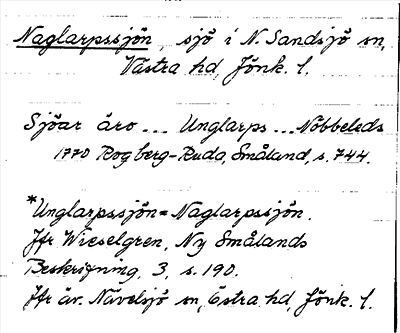 Naglarpssjön, sjö i N. Sandsjö sn,
Västra hd, Jönk. l.
Sjöar äro ... Unglarps ... Nöbbeleds
1770 Rogberg-Ruda, Småland, s. 744.
*Unglarpssjön = Naglarpssjön.
Jfr Wieselgren, Ny Smålands
Beskrifning, 3, s. 190.
Jfr äv. Nävelsjö sn, Östra hd, Jönk. l.